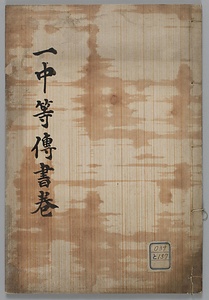 一中等傳書巻